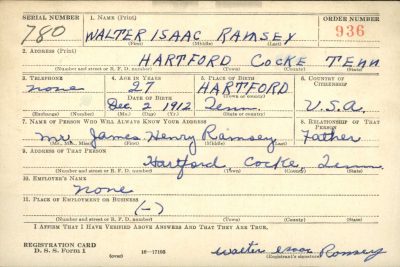 SERIAL NUMBER 1. NAME (Print) ORDER NUMBER
780 WALTER ISAAC RAMSEY 936
(First) (Middle) (Last)
2. ADDRESS (Print)
HARTFORD COCKE TENN
(Number and street or R. F. D. number) (Town) (County) (State)
3. TELEPHONE 4. AGE IN YEARS 5. PLACE OF BIRTH 6. COUNTRY OF CITIZENSHIP
none 27 HARTFORD
DATE OF BIRTH (Town or county)
Dec 2 1912 Tenn. U.S.A.
(Exchange) (Number) (Mo.) (Day) (Yr.) (State or country)
7. NAME OF PERSON WHO WILL ALWAYS KNOW YOUR ADDRESS 8. RELATIONSHIP OF THAT PERSON
Mr. James Henry Ramsey Father
(Mr., Mrs., Miss) (First) (Middle) (Last)
9. ADDRESS OF THAT PERSON
Hartford Cocke, Tenn.
(Number and street or R. F. D. number) (Town) (County) (State)
10. EMPLOYER'S NAME
none
11. PLACE OF EMPLOYMENT OR BUSINESS
(-)
(Number and street or R. F. D. number) (Town) (County) (State)
I AFFIRM THAT I HAVE VERIFIED ABOVE ANSWERS AND THAT THEY ARE TRUE.
REGISTRATION CARD
D. S. S. Form 1 (over) 16—17105 Walter Isaac Ramsey
(Registrant's signature)